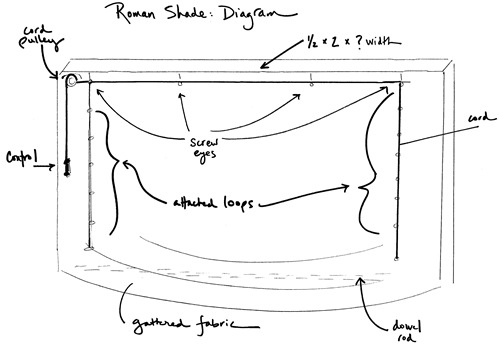 Roman Shade: Diagram
cord
pulley
1/2 x 2 x ? width
screw
eyes
cord
control
attached loops
gathered fabric
dowel
rod